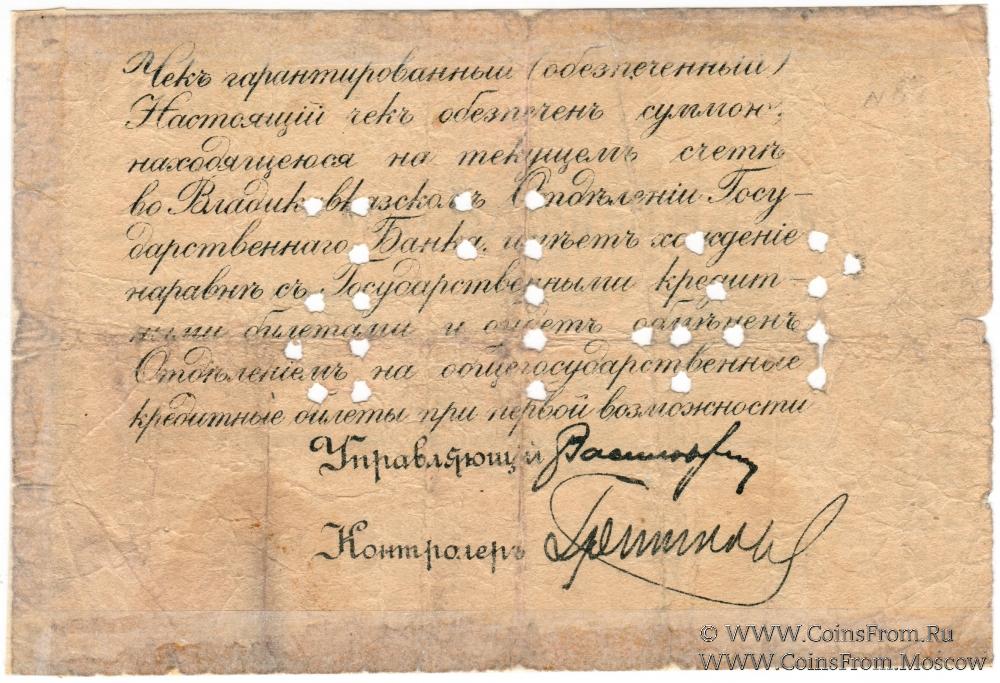 Чекъ гарантированный (обезпеченный)
Настоящій чек обезпечен суммою,
находящеюся на текущемъ счетѣ
во Владикавказскомъ Отдѣленіи Госу-
дарственнаго Банка, имѣетъ хожденіе
наравнѣ съ Государственными кредит-
ными билетами и будетъ обмѣненъ
Отдѣленіемъ на общегосударственные
кредитные билеты при первой возможности
Управляющій
Контролеръ
© WWW.CoinsFrom.Ru
WWW.CoinsFrom.Moscow